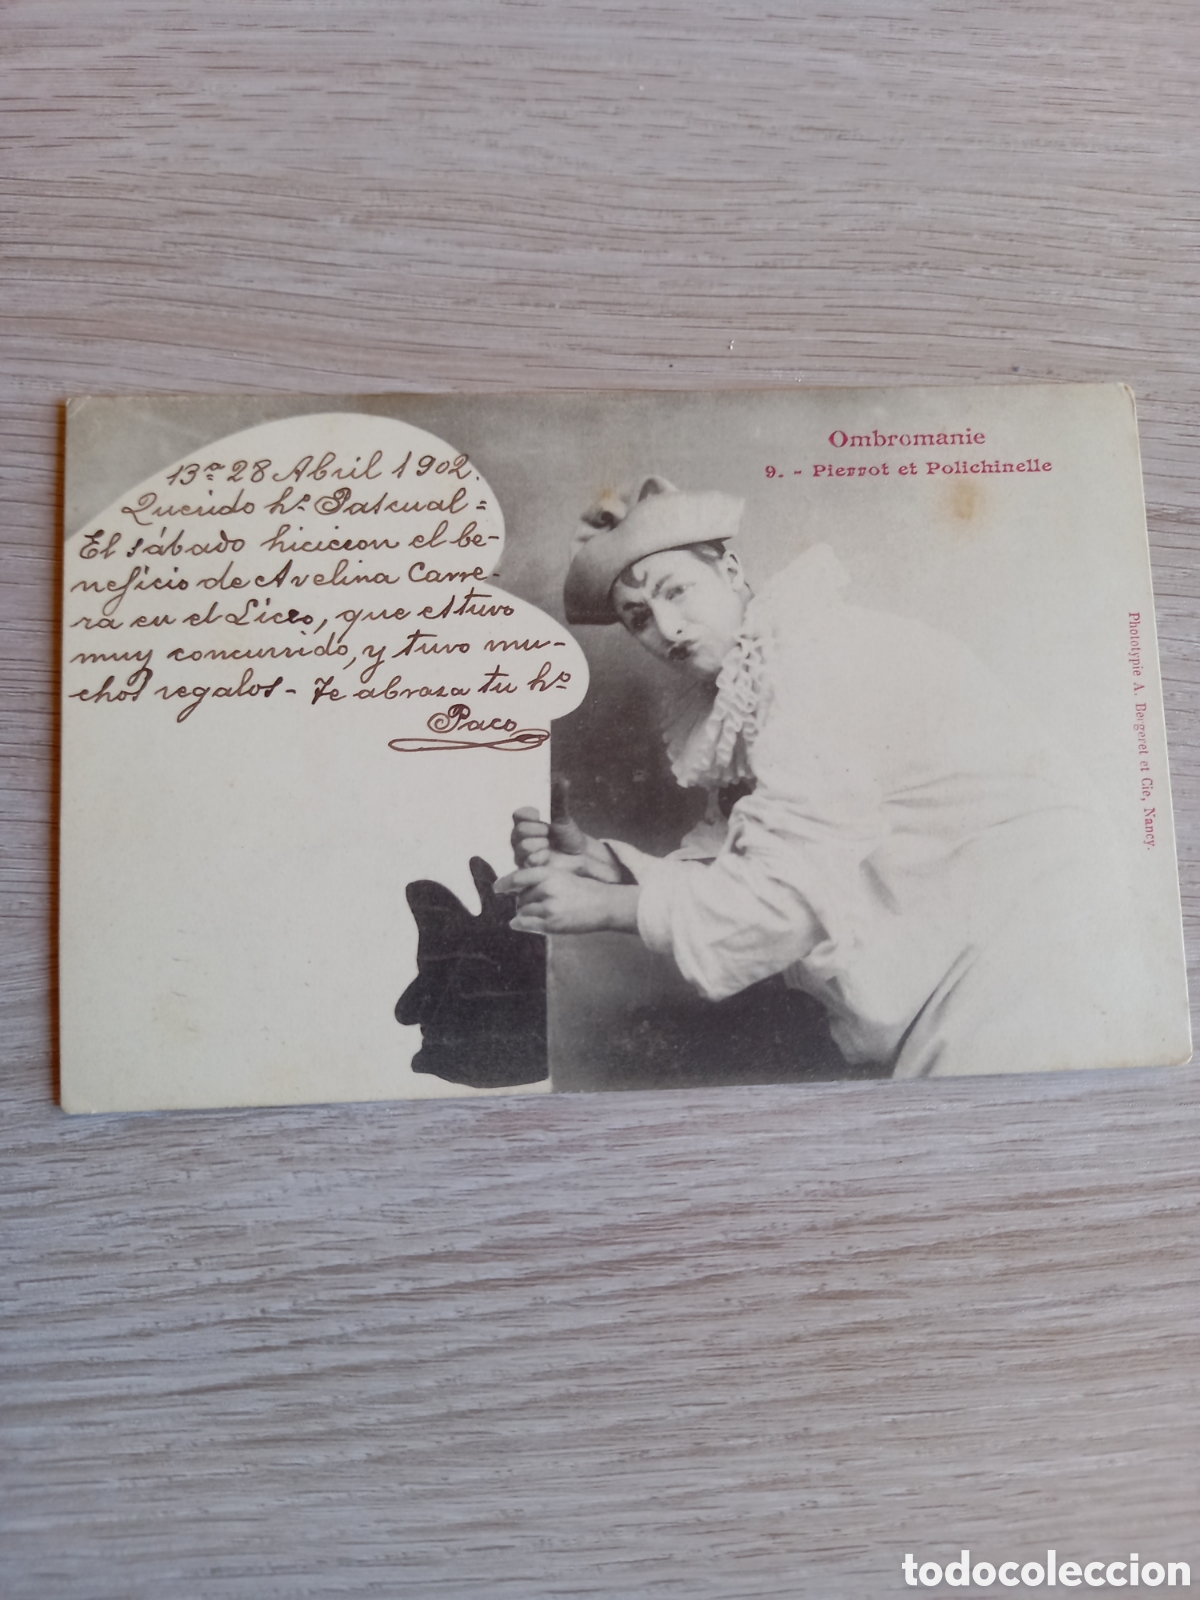 Ombromanie
9. - Pierrot et Polichinelle
13ª 28 Abril 1902.
Querido hº Pascual =
El sábado hicieron el be-
neficio de Avelina Carre-
ra en el Liceo, que estuvo
muy concurrido, y tuvo mu-
chos regalos - Te abraza tu hº
Paco
Phototypie A. Bergeret et Cie, Nancy.
todocoleccion